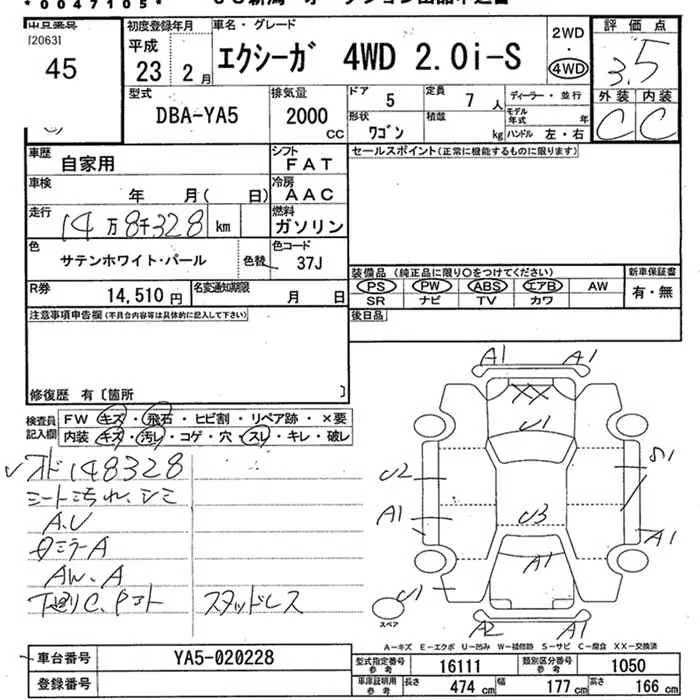 *0047105*
出品番号
[2063]
45
初度登録年月
平成
23 2月
車名・グレード
エクシーガ 4WD 2.0i-S
2WD
・
4WD
評価点
3.5
外装 内装
C C
型式
DBA-YA5
排気量
2000
CC
ドア 5
定員 7人
ディーラー・並行
形状
ワゴン
積載
kg
モデル年式 年
ハンドル 左・右
車歴 自家用
シフト
FAT
セールスポイント(正常に機能するものに限ります)
車検
年 月( 日)
冷房
AAC
走行
14万8千328 km
燃料
ガソリン
色
サテンホワイト・パール
色替
色コード
37J
装備品 (純正品に限り○をつけてください)
新車保証書
PS PW ABS エアB AW
有・無
SR ナビ TV カワ
R券
14,510円
名変通知期限
月 日
後日品
注意事項申告欄(不具合内容等は具体的に記入して下さい)
修復歴 有〔箇所 〕
検査員
記入欄
FW キズ・飛石・ヒビ割・リペア跡・×要
内装 キズ・汚レ・コゲ・穴・スレ・キレ・破レ
オド148328
シート汚れ、シミ
A.U
ミラーA
AW、A
下廻りC、Pコート
スタッドレス
A1 A1
XX
U1
U2
S1
A1
U3
A1
A1
U1
スペア
A2 A1
A-キズ E-エクボ U-凹み W-補修跡 S-サビ C-腐食 XX-交換済
車台番号
YA5-020228
登録番号
型式指定番号
参考
16111
類別区分番号
参考
1050
車庫証明用
参考
長さ 474cm 幅 177cm 高さ 166cm